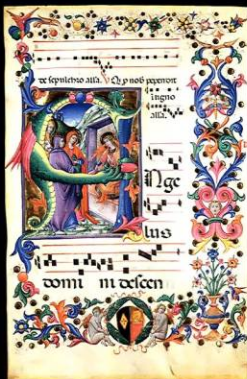 de sepulchro alla. V Q p nob pependit
i ligno
alla.
Nge
lus
domi ni descen